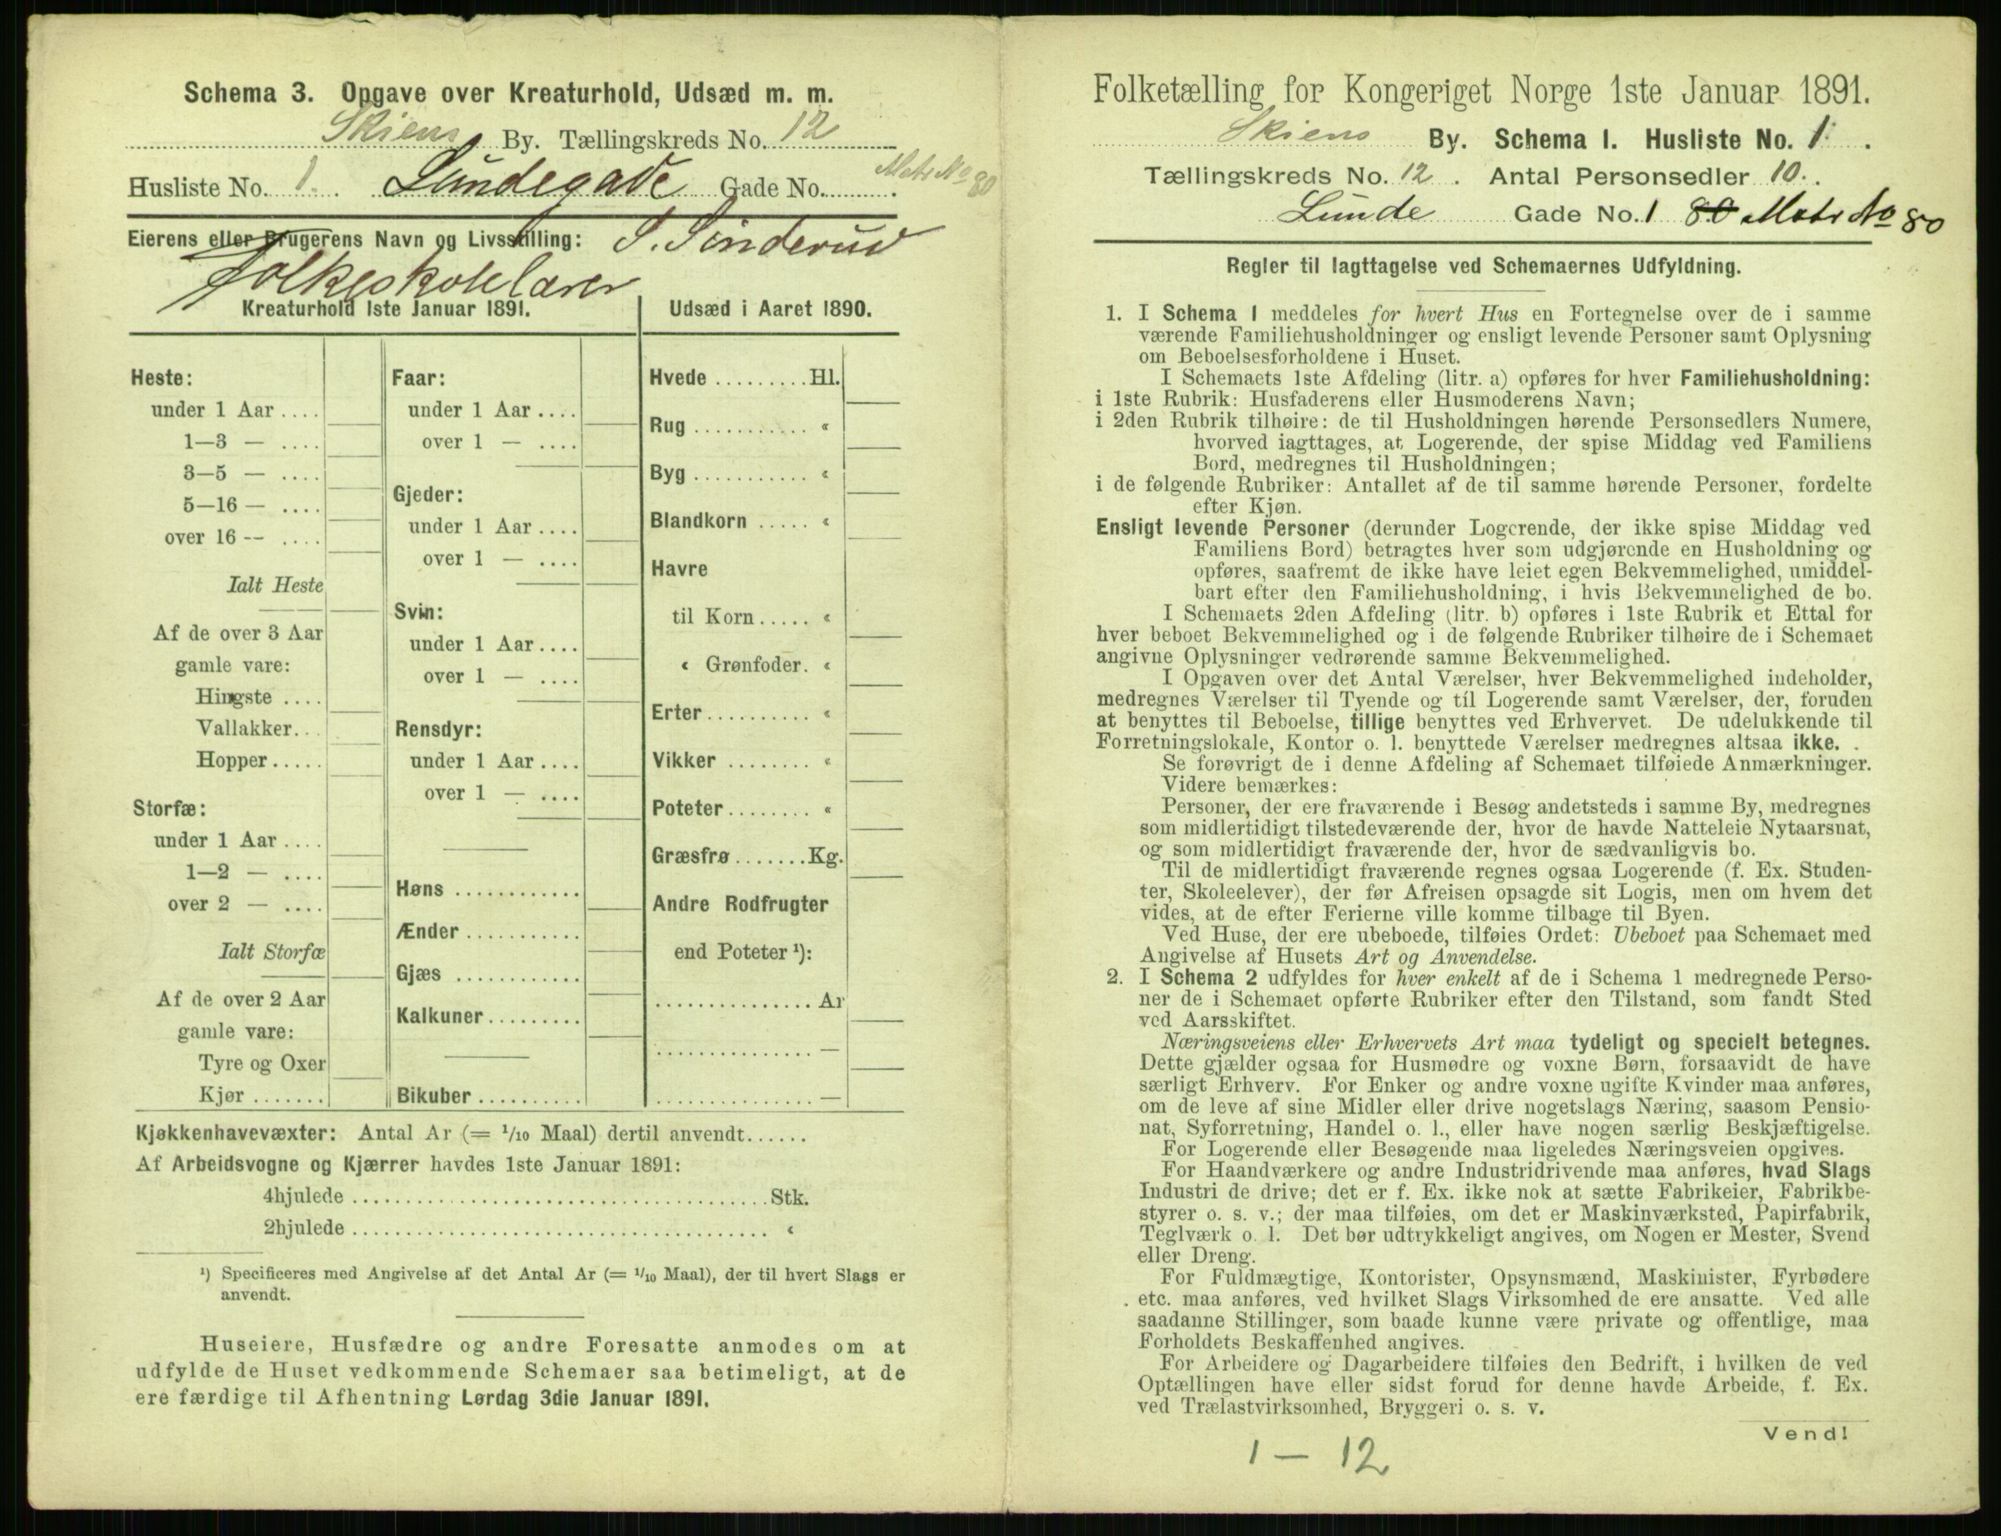 Schema 3. Opgave over Kreaturhold, Udsæd m. m.
Skiens By. Tællingskreds No. 12
Husliste No. 1. Lundegade Gade No. Matr No 80
Eierens eller Brugerens Navn og Livsstilling: S. Sinderud
Folkeskolelærer
Kreaturhold 1ste Januar 1891.
Heste:
under 1 Aar ....
1—3 — ....
3—5 — ....
5—16 — ....
over 16 — ....
Ialt Heste
Af de over 3 Aar
gamle vare:
Hingste ....
Vallakker...
Hopper.....
Storfæ:
under 1 Aar ....
1—2 — ....
over 2 — ....
Ialt Storfæ
Af de over 2 Aar
gamle vare:
Tyre og Oxer
Kjør .......
Faar:
under 1 Aar ....
over 1 — ....
Gjeder:
under 1 Aar ....
over 1 — ....
Svin:
under 1 Aar ....
over 1 — ....
Rensdyr:
under 1 Aar ....
over 1 — ....
Høns ............
Ænder ...........
Gjæs ............
Kalkuner.........
Bikuber ..........
Udsæd i Aaret 1890.
Hvede .........Hl.
Rug ........... «
Byg ........... «
Blandkorn ..... «
Havre
til Korn ..... «
« Grønfoder. «
Erter.......... «
Vikker ........ «
Poteter ........ «
Græsfrø .......Kg.
Andre Rodfrugter
end Poteter ¹):
............... Ar
............... —
............... —
Kjøkkenhavevæxter: Antal Ar (= 1/10 Maal) dertil anvendt......
Af Arbeidsvogne og Kjærrer havdes 1ste Januar 1891:
4hjulede ........................................Stk.
2hjulede ........................................ «
¹) Specificeres med Angivelse af det Antal Ar (= 1/10 Maal), der til hvert Slags er
anvendt.
Huseiere, Husfædre og andre Foresatte anmodes om at
udfylde de Huset vedkommende Schemaer saa betimeligt, at de
ere færdige til Afhentning Lørdag 3die Januar 1891.
Folketælling for Kongeriget Norge 1ste Januar 1891.
Skiens By. Schema I. Husliste No. 1.
Tællingskreds No. 12. Antal Personsedler 10.
Lunde Gade No. 1 80 Matr No 80
Regler til Iagttagelse ved Schemaernes Udfyldning.
1. I Schema I meddeles for hvert Hus en Fortegnelse over de i samme
værende Familiehusholdninger og ensligt levende Personer samt Oplysning
om Beboelsesforholdene i Huset.
I Schemaets 1ste Afdeling (litr. a) opføres for hver Familiehusholdning:
i 1ste Rubrik: Husfaderens eller Husmoderens Navn;
i 2den Rubrik tilhøire: de til Husholdningen hørende Personsedlers Numere,
hvorved iagttages, at Logerende, der spise Middag ved Familiens
Bord, medregnes til Husholdningen;
i de følgende Rubriker: Antallet af de til samme hørende Personer, fordelte
efter Kjøn.
Ensligt levende Personer (derunder Logerende, der ikke spise Middag ved
Familiens Bord) betragtes hver som udgjørende en Husholdning og
opføres, saafremt de ikke have leiet egen Bekvemmelighed, umiddel-
bart efter den Familiehusholdning, i hvis Bekvemmelighed de bo.
I Schemaets 2den Afdeling (litr. b) opføres i 1ste Rubrik et Ettal for
hver beboet Bekvemmelighed og i de følgende Rubriker tilhøire de i Schemaet
angivne Oplysninger vedrørende samme Bekvemmelighed.
I Opgaven over det Antal Værelser, hver Bekvemmelighed indeholder,
medregnes Værelser til Tyende og til Logerende samt Værelser, der, foruden
at benyttes til Beboelse, tillige benyttes ved Erhvervet. De udelukkende til
Forretningslokale, Kontor o. l. benyttede Værelser medregnes altsaa ikke.
Se forøvrigt de i denne Afdeling af Schemaet tilføiede Anmærkninger.
Videre bemærkes:
Personer, der ere fraværende i Besøg andetsteds i samme By, medregnes
som midlertidigt tilstedeværende der, hvor de havde Natteleie Nytaarsnat,
og som midlertidigt fraværende der, hvor de sædvanligvis bo.
Til de midlertidigt fraværende regnes ogsaa Logerende (f. Ex. Studen-
ter, Skoleelever), der før Afreisen opsagde sit Logis, men om hvem det
vides, at de efter Ferierne ville komme tilbage til Byen.
Ved Huse, der ere ubeboede, tilføies Ordet: Ubeboet paa Schemaet med
Angivelse af Husets Art og Anvendelse.
2. I Schema 2 udfyldes for hver enkelt af de i Schema 1 medregnede Perso-
ner de i Schemaet opførte Rubriker efter den Tilstand, som fandt Sted
ved Aarsskiftet.
Næringsveiens eller Erhvervets Art maa tydeligt og specielt betegnes.
Dette gjælder ogsaa for Husmødre og voxne Børn, forsaavidt de have
særligt Erhverv. For Enker og andre voxne ugifte Kvinder maa anføres,
om de leve af sine Midler eller drive nogetslags Næring, saasom Pensio-
nat, Syforretning, Handel o. l., eller have nogen særlig Beskjæftigelse.
For Logerende eller Besøgende maa ligeledes Næringsveien opgives.
For Haandværkere og andre Industridrivende maa anføres, hvad Slags
Industri de drive; det er f. Ex. ikke nok at sætte Fabrikeier, Fabrikbe-
styrer o. s. v.; der maa tilføies, om det er Maskinværksted, Papirfabrik,
Teglværk o. l. Det bør udtrykkeligt angives, om Nogen er Mester, Svend
eller Dreng.
For Fuldmægtige, Kontorister, Opsynsmænd, Maskinister, Fyrbødere
etc. maa anføres, ved hvilket Slags Virksomhed de ere ansatte. Ved alle
saadanne Stillinger, som baade kunne være private og offentlige, maa
Forholdets Beskaffenhed angives.
For Arbeidere og Dagarbeidere tilføies den Bedrift, i hvilken de ved
Optællingen have eller sidst forud for denne havde Arbeide, f. Ex.
ved Trælastvirksomhed, Bryggeri o. s. v.
Vend!
1 — 12